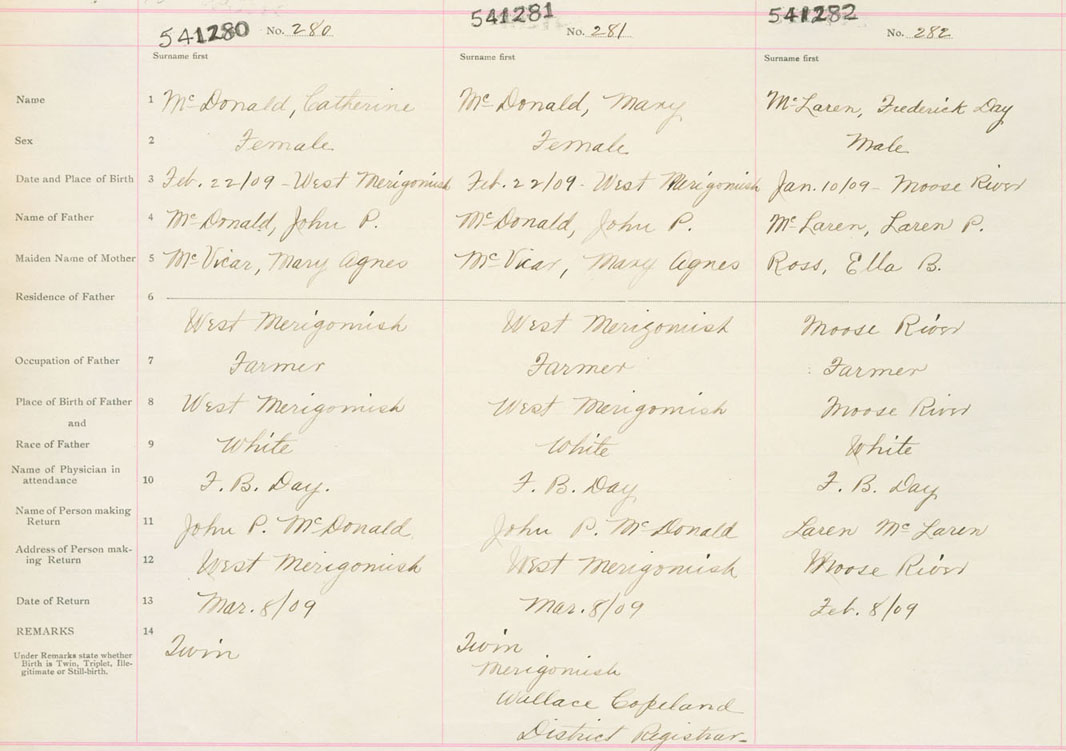 541280 No. 280 541281 No. 281 541282 No. 282
Surname first Surname first Surname first
Name 1 McDonald, Catherine McDonald, Mary McLaren, Frederick Day
Sex 2 Female Female Male
Date and Place of Birth 3 Feb. 22/09 - West Merigomish Feb. 22/09 - West Merigomish Jan. 10/09 - Moose River
Name of Father 4 McDonald, John P. McDonald, John P. McLaren, Laren P.
Maiden Name of Mother 5 McVicar, Mary Agnes McVicar, Mary Agnes Ross, Ella B.
Residence of Father 6
West Merigomish West Merigomish Moose River
Occupation of Father 7 Farmer Farmer Farmer
Place of Birth of Father 8 West Merigomish West Merigomish Moose River
and
Race of Father 9 White White White
Name of Physician in
attendance 10 F. B. Day. F. B. Day F. B. Day
Name of Person making
Return 11 John P. McDonald John P. McDonald Laren McLaren
Address of Person mak-
ing Return 12 West Merigomish West Merigomish Moose River
Date of Return 13 Mar. 8/09 Mar. 8/09 Feb. 8/09
REMARKS 14 Twin Twin
Under Remarks state whether
Birth is Twin, Triplet, Ille-
gitimate or Still-birth.
Merigomish
Wallace Copeland
District Registrar.